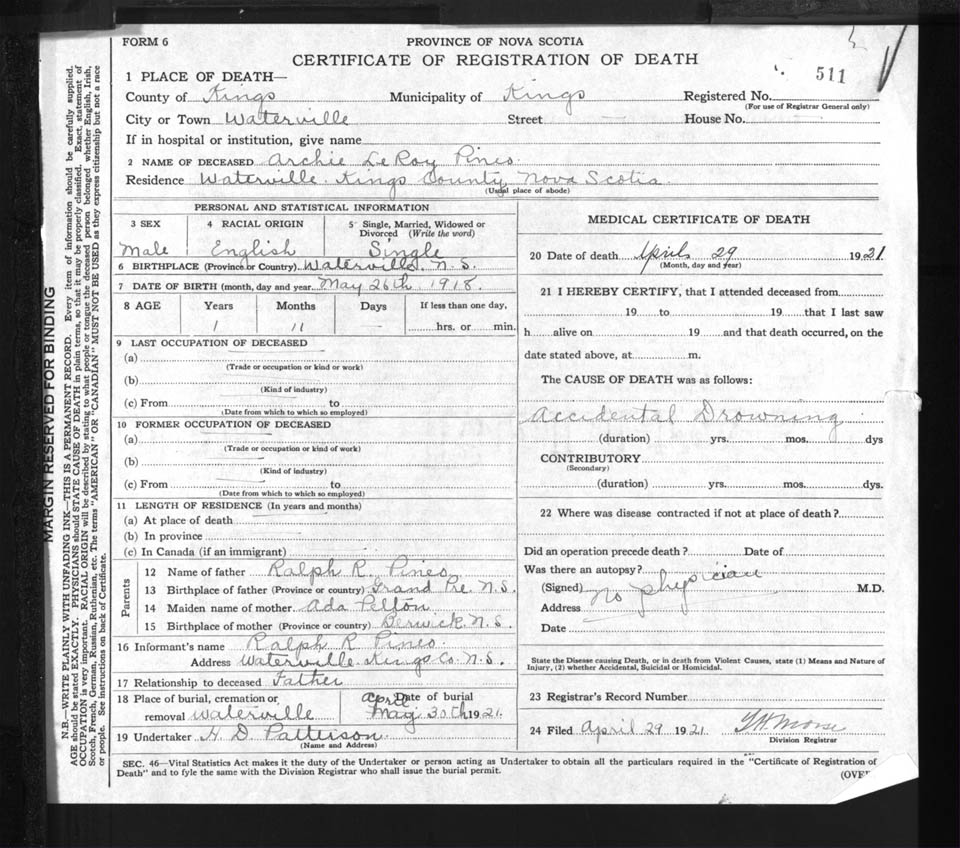 FORM 6
PROVINCE OF NOVA SCOTIA
CERTIFICATE OF REGISTRATION OF DEATH
511
1 PLACE OF DEATH—
County of Kings Municipality of Kings Registered No.
(For use of Registrar General only)
City or Town Waterville Street House No.
If in hospital or institution, give name
2 NAME OF DECEASED Archie LeRoy Pineo
Residence Waterville. Kings County, Nova Scotia.
(Usual place of abode)
PERSONAL AND STATISTICAL INFORMATION
3 SEX 4 RACIAL ORIGIN 5 Single, Married, Widowed or Divorced (Write the word)
Male English Single
6 BIRTHPLACE (Province or Country) Waterville, N.S.
7 DATE OF BIRTH (month, day and year. May 26th 1918.
8 AGE Years Months Days If less than one day,
1 11 — hrs. or min.
9 LAST OCCUPATION OF DECEASED
(a)
(Trade or occupation or kind or work)
(b)
(Kind of industry)
(c) From to
(Date from which to which so employed)
10 FORMER OCCUPATION OF DECEASED
(a)
(Trade or occupation or kind of work)
(b)
(Kind of industry)
(c) From to
(Date from which to which so employed)
11 LENGTH OF RESIDENCE (In years and months)
(a) At place of death
(b) In province
(c) In Canada (if an immigrant)
Parents
12 Name of father Ralph R. Pineo
13 Birthplace of father (Province or country) Grand Pre. N.S.
14 Maiden name of mother Ada Pelton
15 Birthplace of mother (Province or country) Berwick. N.S.
16 Informant's name Ralph R Pineo
Address Waterville. Kings Co. N.S.
17 Relationship to deceased Father
18 Place of burial, cremation or removal Waterville
Date of burial April May 30th 1921.
19 Undertaker H. D. Patterson
(Name and Address)
MEDICAL CERTIFICATE OF DEATH
20 Date of death April 29 1921
(Month, day and year)
21 I HEREBY CERTIFY, that I attended deceased from
19 to 19 that I last saw
h alive on 19 and that death occurred, on the
date stated above, at m.
The CAUSE OF DEATH was as follows:
Accidental Drowning
(duration) yrs. mos. dys
CONTRIBUTORY
(Secondary)
(duration) yrs. mos. dys.
22 Where was disease contracted if not at place of death?
Did an operation precede death? Date of
Was there an autopsy?
(Signed) no physician M.D.
Address
Date
State the Disease causing Death, or in death from Violent Causes, state (1) Means and Nature of
Injury, (2) whether Accidental, Suicidal or Homicidal.
23 Registrar's Record Number
24 Filed April 29 1921
Division Registrar
SEC. 46—Vital Statistics Act makes it the duty of the Undertaker or person acting as Undertaker to obtain all the particulars required in the "Certificate of Registration of
Death" and to fyle the same with the Division Registrar who shall issue the burial permit.
(OVER
MARGIN RESERVED FOR BINDING
N.B.—WRITE PLAINLY WITH UNFADING INK—THIS IS A PERMANENT RECORD. Every item of information should be carefully supplied.
AGE should be stated EXACTLY. PHYSICIANS should STATE CAUSE OF DEATH in plain terms, so that it may be properly classified. Exact, statement of
OCCUPATION is very important. RACIAL ORIGIN will be described by stating to what people or tongue the deceased person belonged whether English, Irish,
Scotch, French, German, Russian, Ruthenian, etc. The terms "AMERICAN" OR "CANADIAN" MUST NOT BE USED as they express citizenship but not a race
or people. See instructions on back of Certificate.